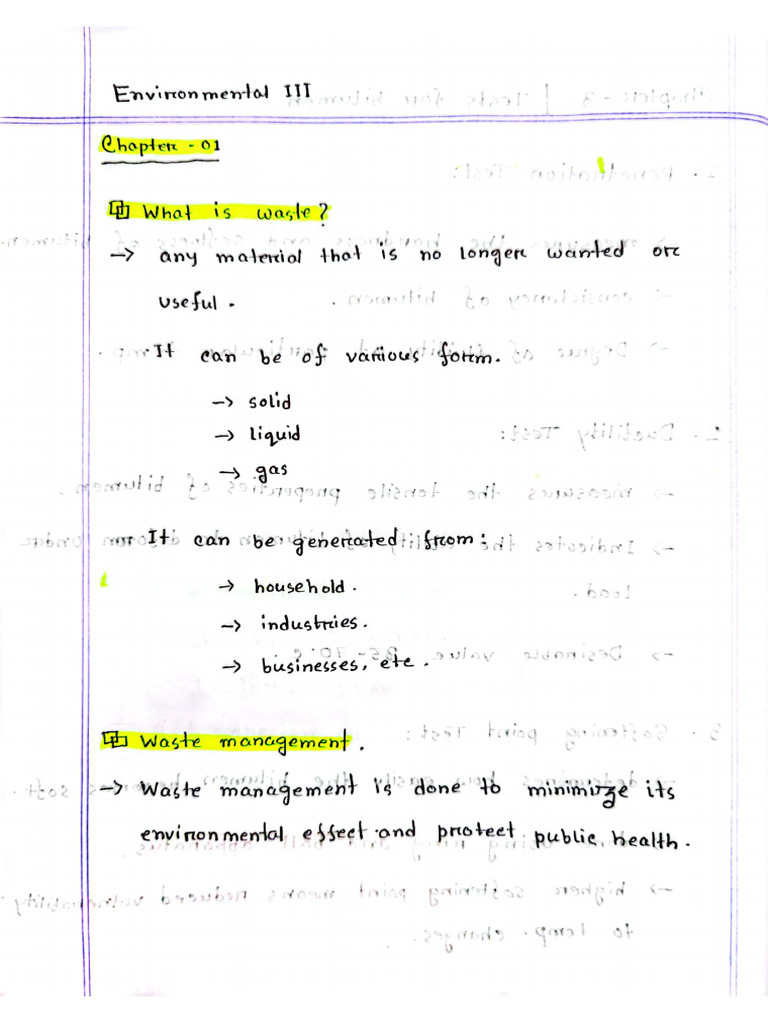 Environmental III
Chapter - 01
What is waste?
→ any material that is no longer wanted or
useful.
It can be of various form.
→ solid
→ liquid
→ gas
It can be generated from:
→ household.
→ industries.
→ businesses, etc.
Waste management.
→ Waste management is done to minimize its
environmental effect and protect public health.